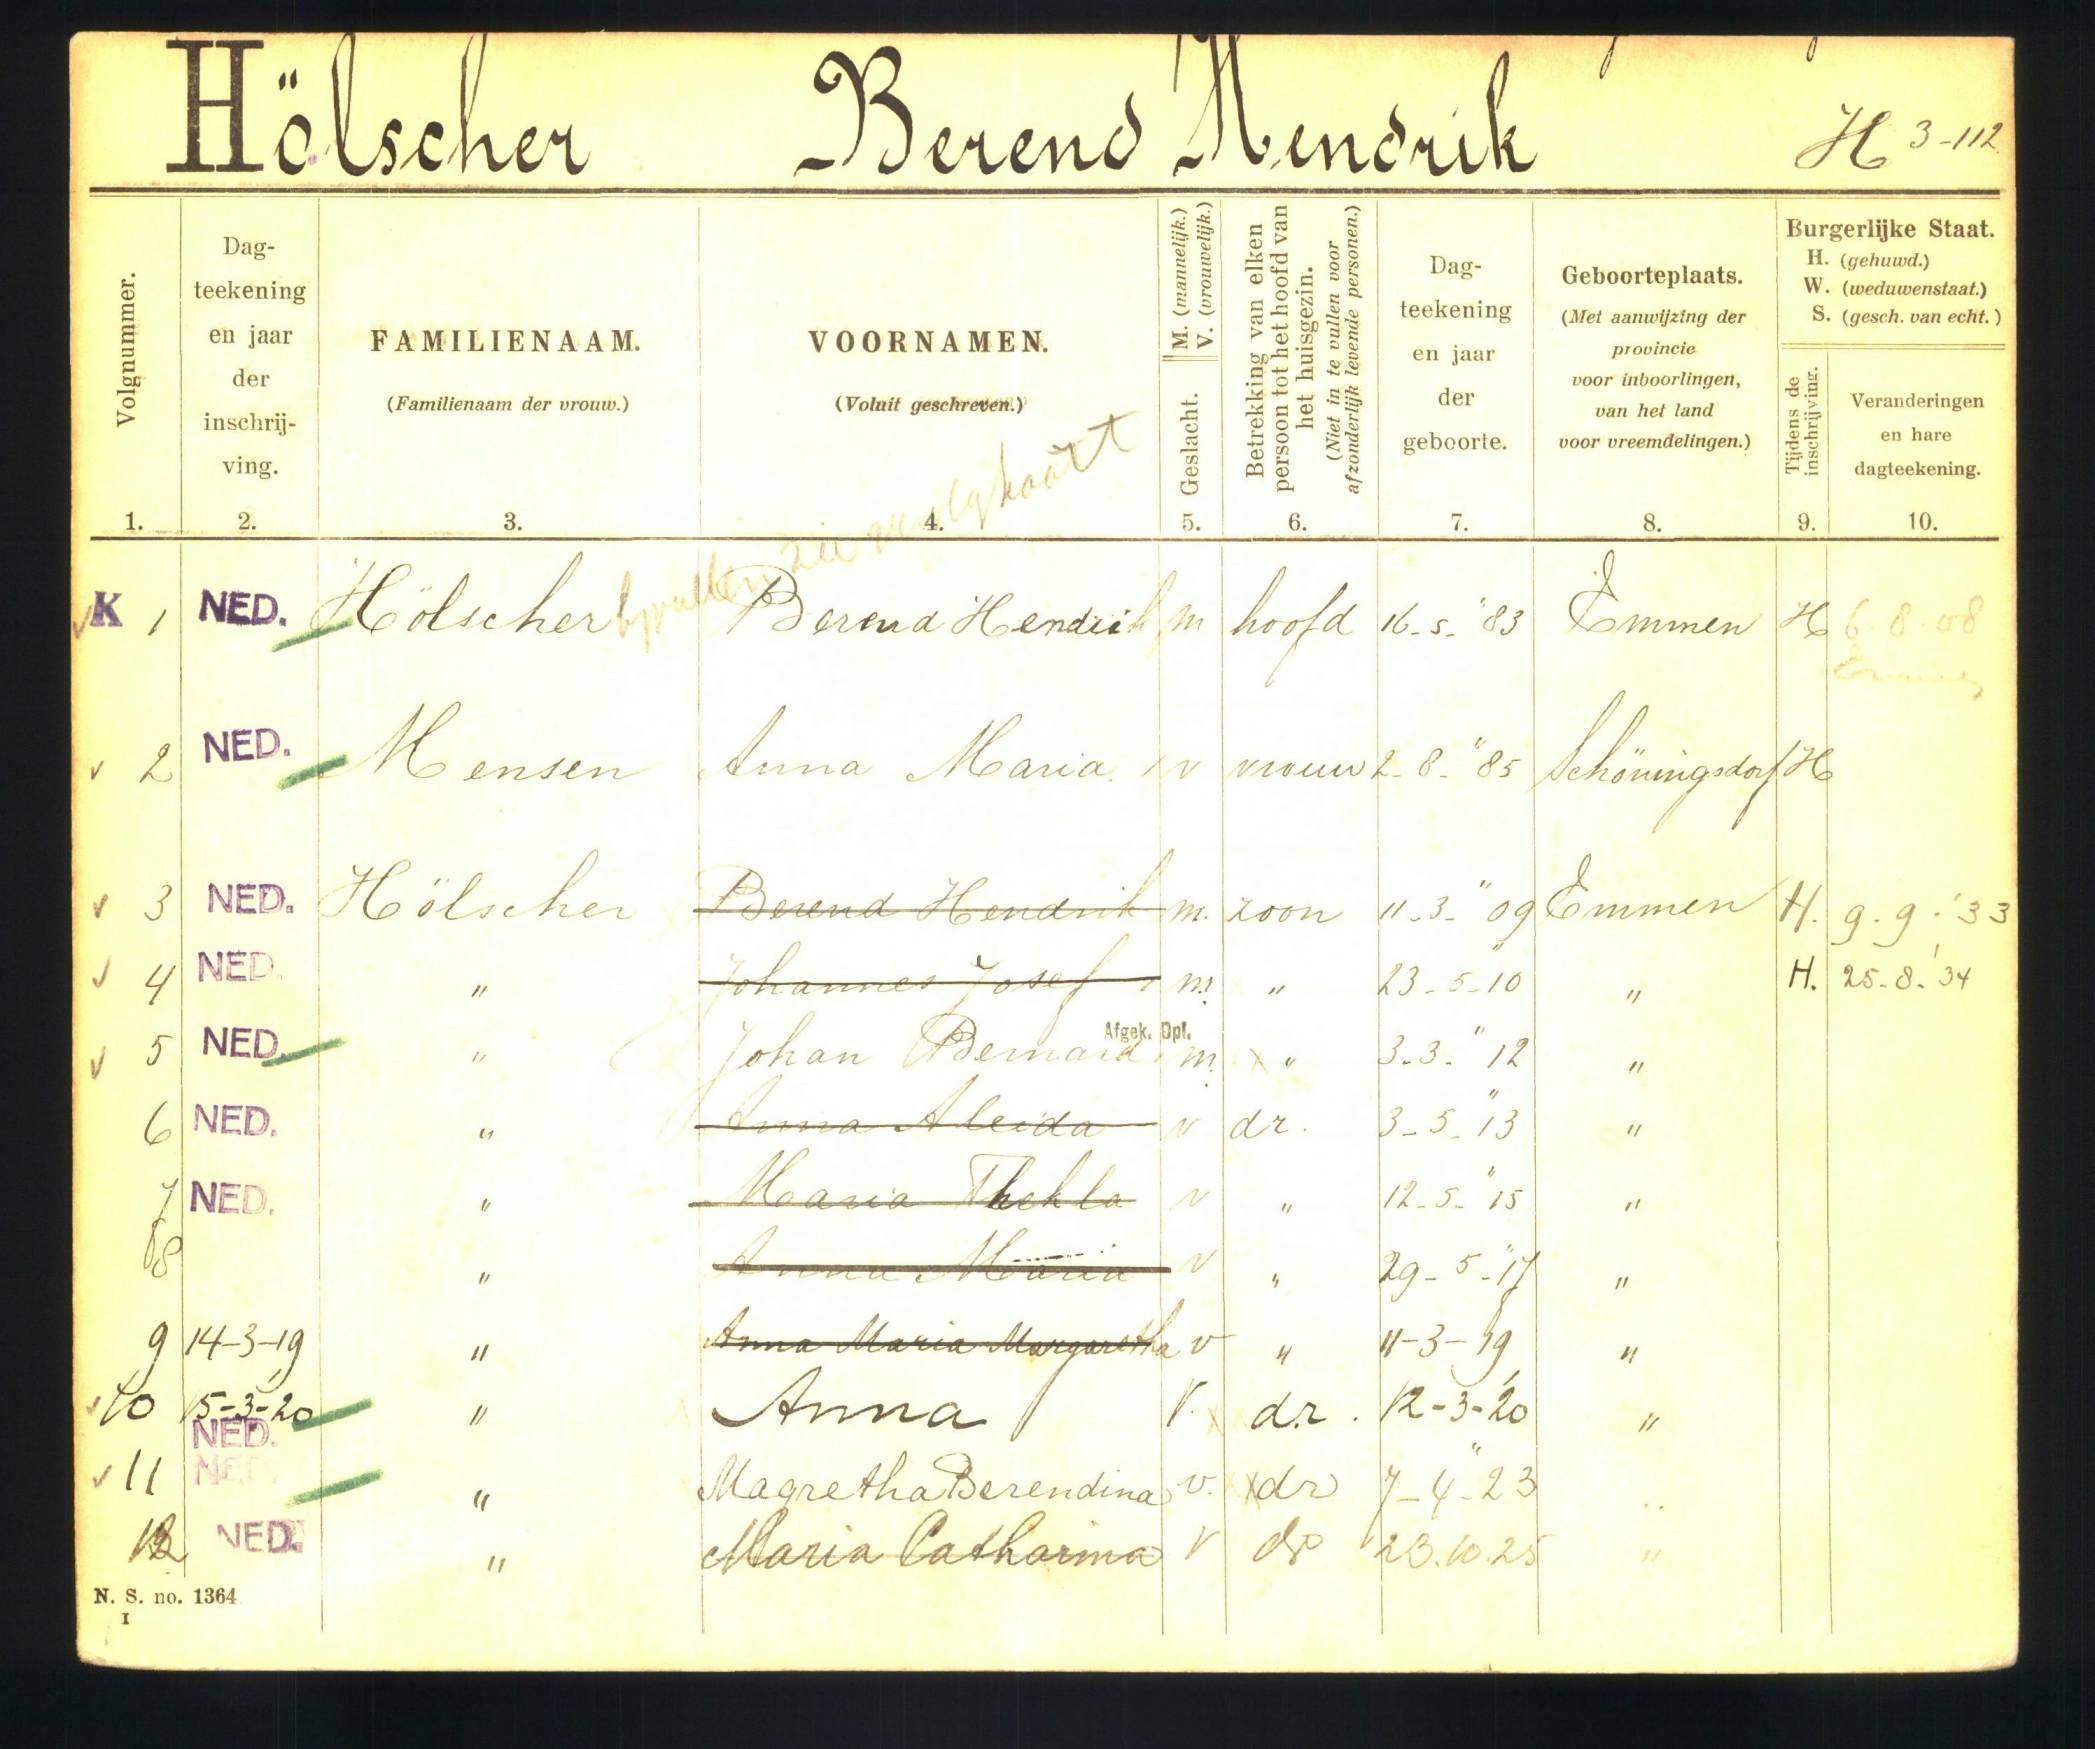 Hölscher Berend Hendrik H 3-112
Volgnummer.
Dag-
teekening
en jaar
der
inschrij-
ving.
FAMILIENAAM.
(Familienaam der vrouw.)
VOORNAMEN.
(Voluit geschreven.)
Geslacht.
M. (mannelijk.)
V. (vrouwelijk.)
Betrekking van elken
persoon tot het hoofd van
het huisgezin.
(Niet in te vullen voor
afzonderlijk levende personen.)
Dag-
teekening
en jaar
der
geboorte.
Geboorteplaats.
(Met aanwijzing der
provincie
voor inboorlingen,
van het land
voor vreemdelingen.)
Burgerlijke Staat.
H. (gehuwd.)
W. (weduwenstaat.)
S. (gesch. van echt.)
Tijdens de
inschrijving.
Veranderingen
en hare
dagteekening.
1. 2. 3. 4. 5. 6. 7. 8. 9. 10.
K 1 NED. Hölscher Berend Hendrik m hoofd 16-5-"83 Emmen H 6-8-08
Emmen
2 NED. Mensen Anna Maria v vrouw 2-8-"85 Schöningsdorf H
3 NED. Hölscher Berend Hendrik m. zoon 11-3-"09 Emmen H. 9-9-'33
4 NED. " Johannes Josef m. " 23-5-"10 " H. 25-8-'34
Afgek. Dpl.
5 NED. " Johan Bernard m. " 3-3-"12 "
6 NED. " Anna Aleida v dr. 3-5-"13 "
7 NED. " Maria Thekla v " 12-5-"15 "
8 " Anna Maria v " 29-5-"17 "
9 14-3-19 " Anna Maria Margaretha v " 11-3-19 "
10 15-3-20 " Anna v. dr. 12-3-'20 "
NED.
11 NED. " Magretha Berendina v. dr 7-4-"23 "
12 NED. " Maria Catharina v dr 23.10.25 "
N. S. no. 1364
I